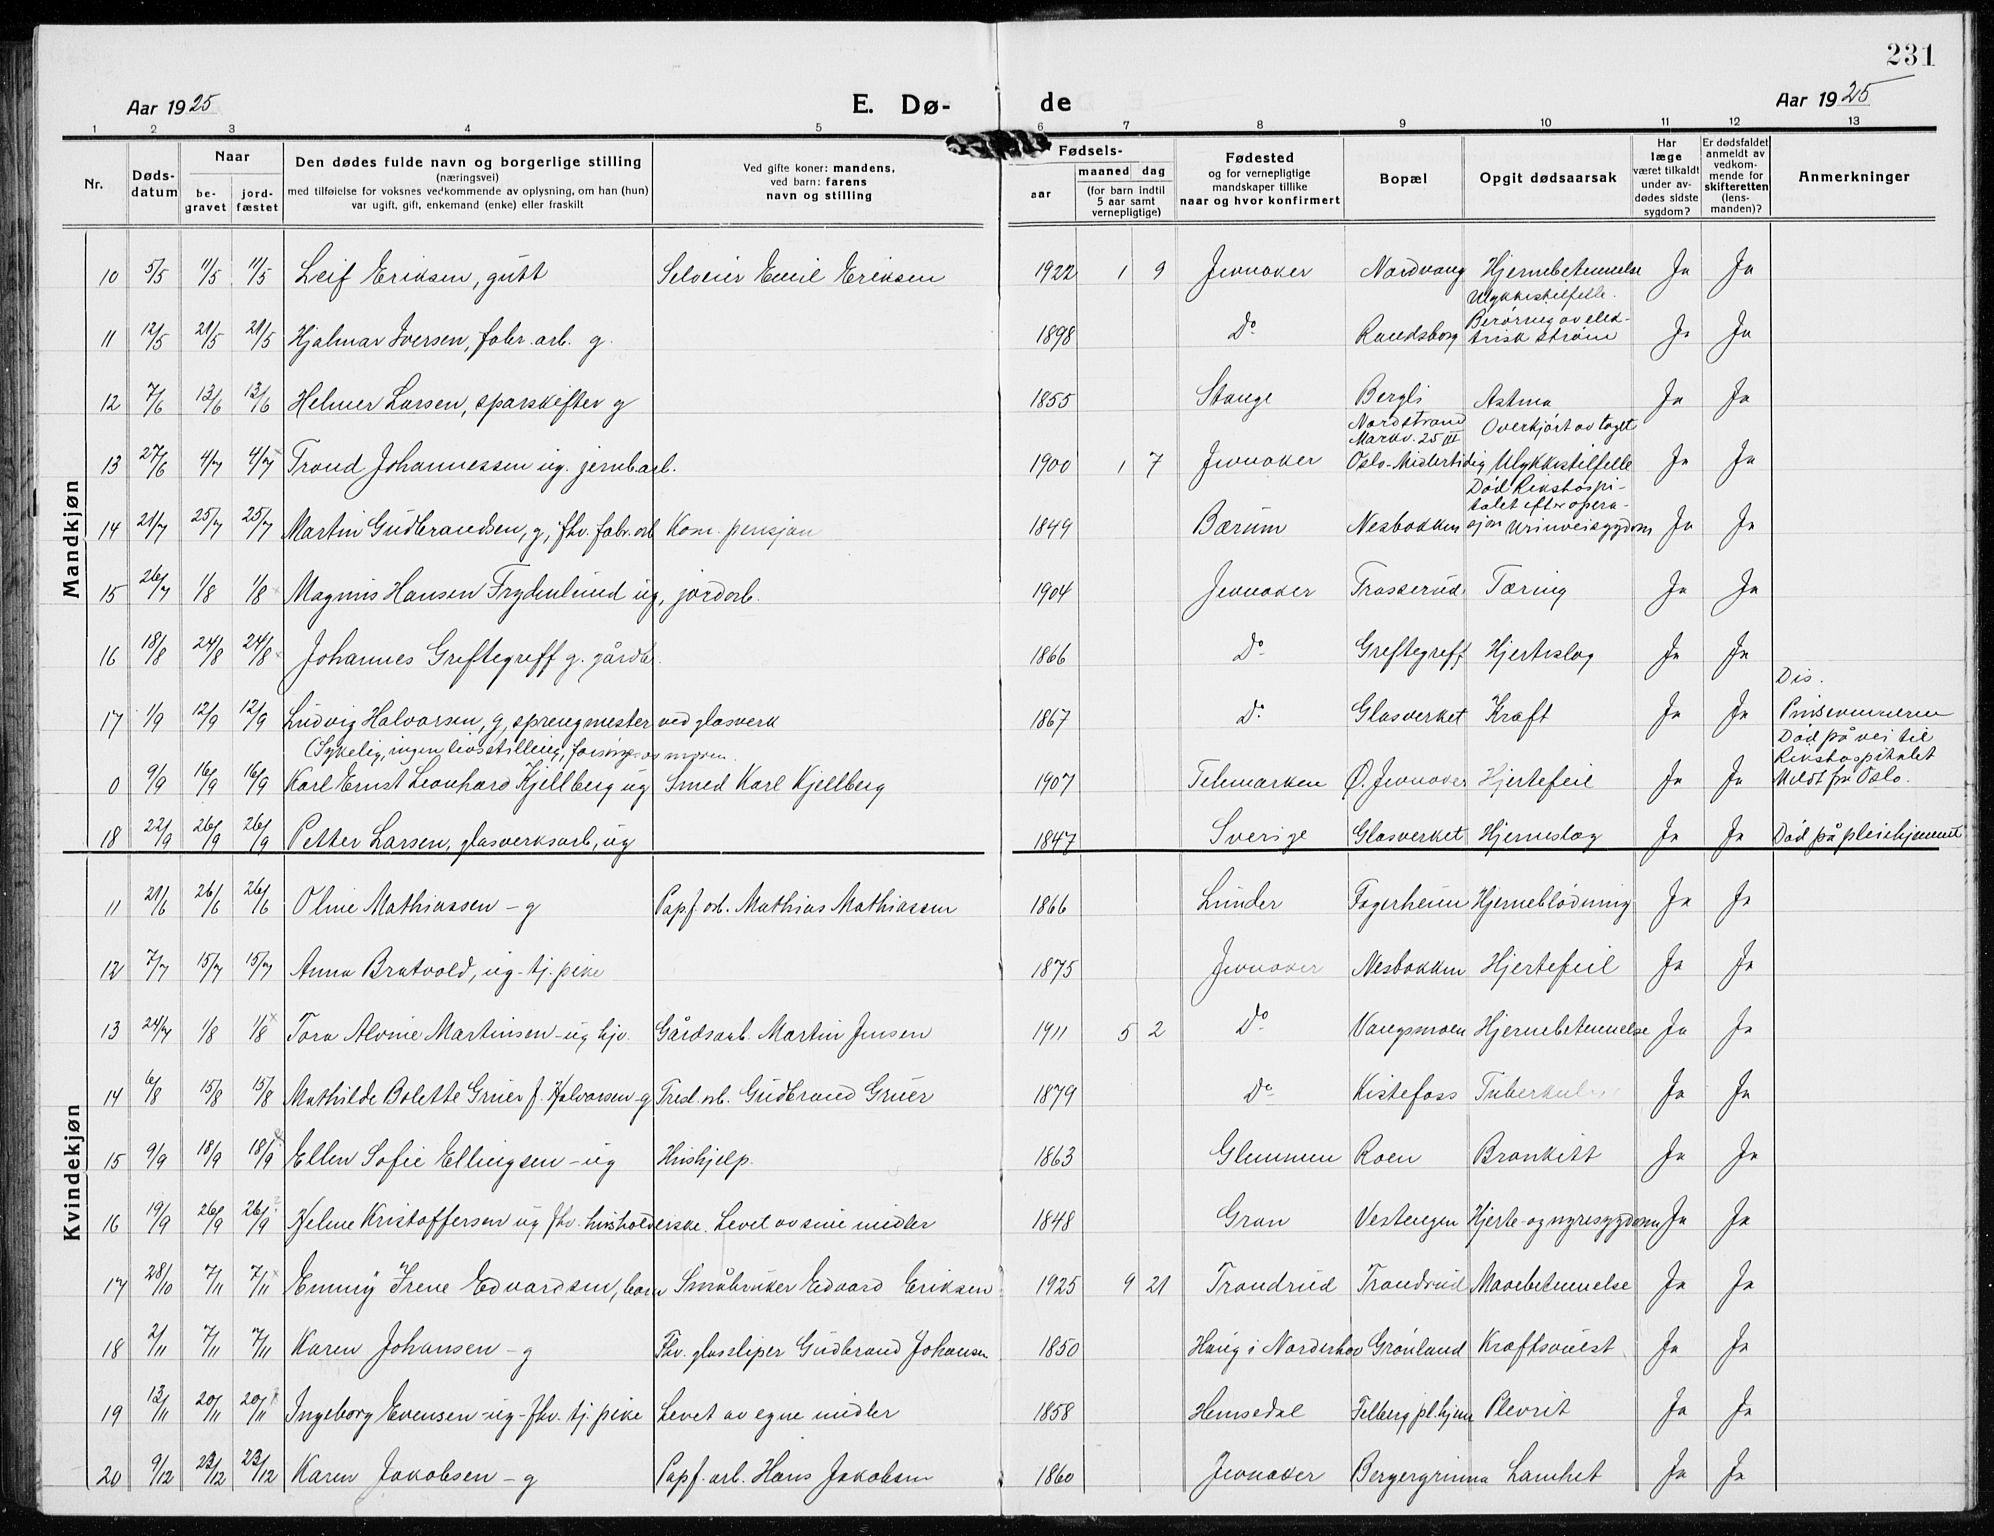 231
Aar 1925 E. Dø- de Aar 1925
1 2 3 4 5 6 7 8 9 10 11 12 13
Nr.
Døds-
datum
Naar
be-
gravet
jord-
fæstet
Den dødes fulde navn og borgerlige stilling
(næringsvei)
med tilføielse for voksnes vedkommende av oplysning, om han (hun)
var ugift, gift, enkemand (enke) eller fraskilt
Ved gifte koner: mandens,
ved barn: farens
navn og stilling
Fødsels-
aar
maaned dag
(for barn indtil
5 aar samt
vernepligtige)
Fødested
og for vernepligtige
mandskaper tillike
naar og hvor konfirmert
Bopæl
Opgit dødsaarsak
Har
læge
været tilkaldt
under av-
dødes sidste
sygdom?
Er dødsfaldet
anmeldt av
vedkom-
mende for
skifteretten
(lens-
manden)?
Anmerkninger
Mandkjøn
10 5/5 11/5 11/5 Leif Eriksen, gutt Selveier Emil Eriksen 1922 1 9 Jevnaker Nordvang Hjernebetennelse Ja Ja
Ulykkestilfelle.
Berøring av elek-
11 12/5 21/5 21/5 Hjalmar Iversen, fabr. arb. g. 1898 Do Randsborg trisk strøm Ja Ja
12 7/6 13/6 13/6 Helmer Larsen, sparskifter g 1855 Stange Bergli Astma Ja Ja
Nordstrand Overkjørt av toget
Markv. 25 III
13 27/6 4/7 4/7 Trond Johannessen ug. jernb.arb. 1900 1 7 Jevnaker Oslo-Midlertidig Ulykkestilfelle Ja Ja
Død Rikshospi-
talet efter opera-
14 21/7 25/7 25/7 Martin Gudbrandsen, g, fhv. fabr. arb Kom. pensjon 1849 Bærum Nesbakken sjon Urinveisygdom Ja Ja
15 26/7 1/8 1/8 Magnus Hansen Frydenlund ug, jordarb. 1904 Jevnaker Trosserud Tæring Ja Ja
16 18/8 24/8 24/8 Johannes Greftegreff g. gårdb. 1866 Do Greftegreff Hjerteslag Ja Ja
Dis.
17 1/9 12/9 12/9 Ludvig Halvorsen, g, sprengmester ved glasverk 1867 Do Glasverket Kræft Ja Ja Pinsevennerne
(Sykelig, ingen livsstilling, forsørges av moren. Død på vei til
Rikshospitalet
0 9/9 16/9 16/9 Karl Ernst Leonhard Kjellberg ug Smed Karl Kjellberg 1907 Telemarken Ø. Jevnaker Hjertefeil Ja Ja Meldt fra Oslo.
18 22/9 26/9 26/9 Petter Larsen, glasverksarb, ug 1847 Sverige Glasverket Hjerneslag Ja Ja Død på pleiehjemmet
Kvindekjøn
11 21/6 26/6 26/6 Oline Mathiassen - g Papf. arb. Mathias Mathiassen 1866 Lunder Fagerheim Hjerneblødning Ja Ja
12 7/7 15/7 15/7 Anna Bratvold, ug - tj. pike 1875 Jevnaker Nesbakken Hjertefeil Ja Ja
13 24/7 1/8 1/8 Tora Alvine Martinsen - ug hjv. Gårdsarb. Martin Jensen 1911 5 2 Do Vangsmoen Hjernebetennelse Ja Ja
14 6/8 15/8 15/8 Mathilde Bolette Gruer f. Halvorsen - g Tresl. arb. Gudbrand Gruer 1879 Do Kistefoss Ja Ja
15 9/9 18/9 18/9 Ellen Sofie Ellingsen - ug Hushjelp. 1863 Glemmen Roen Bronkitt Ja Ja
16 19/9 26/9 26/9 Helene Kristoffersen ug fhv. husholderske. Levet av sine midler 1848 Gran Vestengen Hjerte- og nyresygdom Ja Ja
17 28/10 7/11 7/11 Emmy Irene Edvardsen, barn Småbruker Edvard Eriksen 1925 9 21 Trondrud Trondrud Mavebetennelse Ja Ja
18 2/11 7/11 7/11 Karen Johansen - g Fhv. glassliper Gudbrand Johansen 1850 Haug i Norderhov Grønland Kræftsvulst Ja Ja
19 13/11 20/11 20/11 Ingeborg Evensen - ug - fhv. tj. pike Levet av egne midler 1858 Hemsedal Felberg pl.hjem Plevrit Ja Ja
20 9/12 23/12 23/12 Karen Jakobsen - g Papf. arb. Hans Jakobsen 1860 Jevnaker Bergergrinna Lamhet Ja Ja